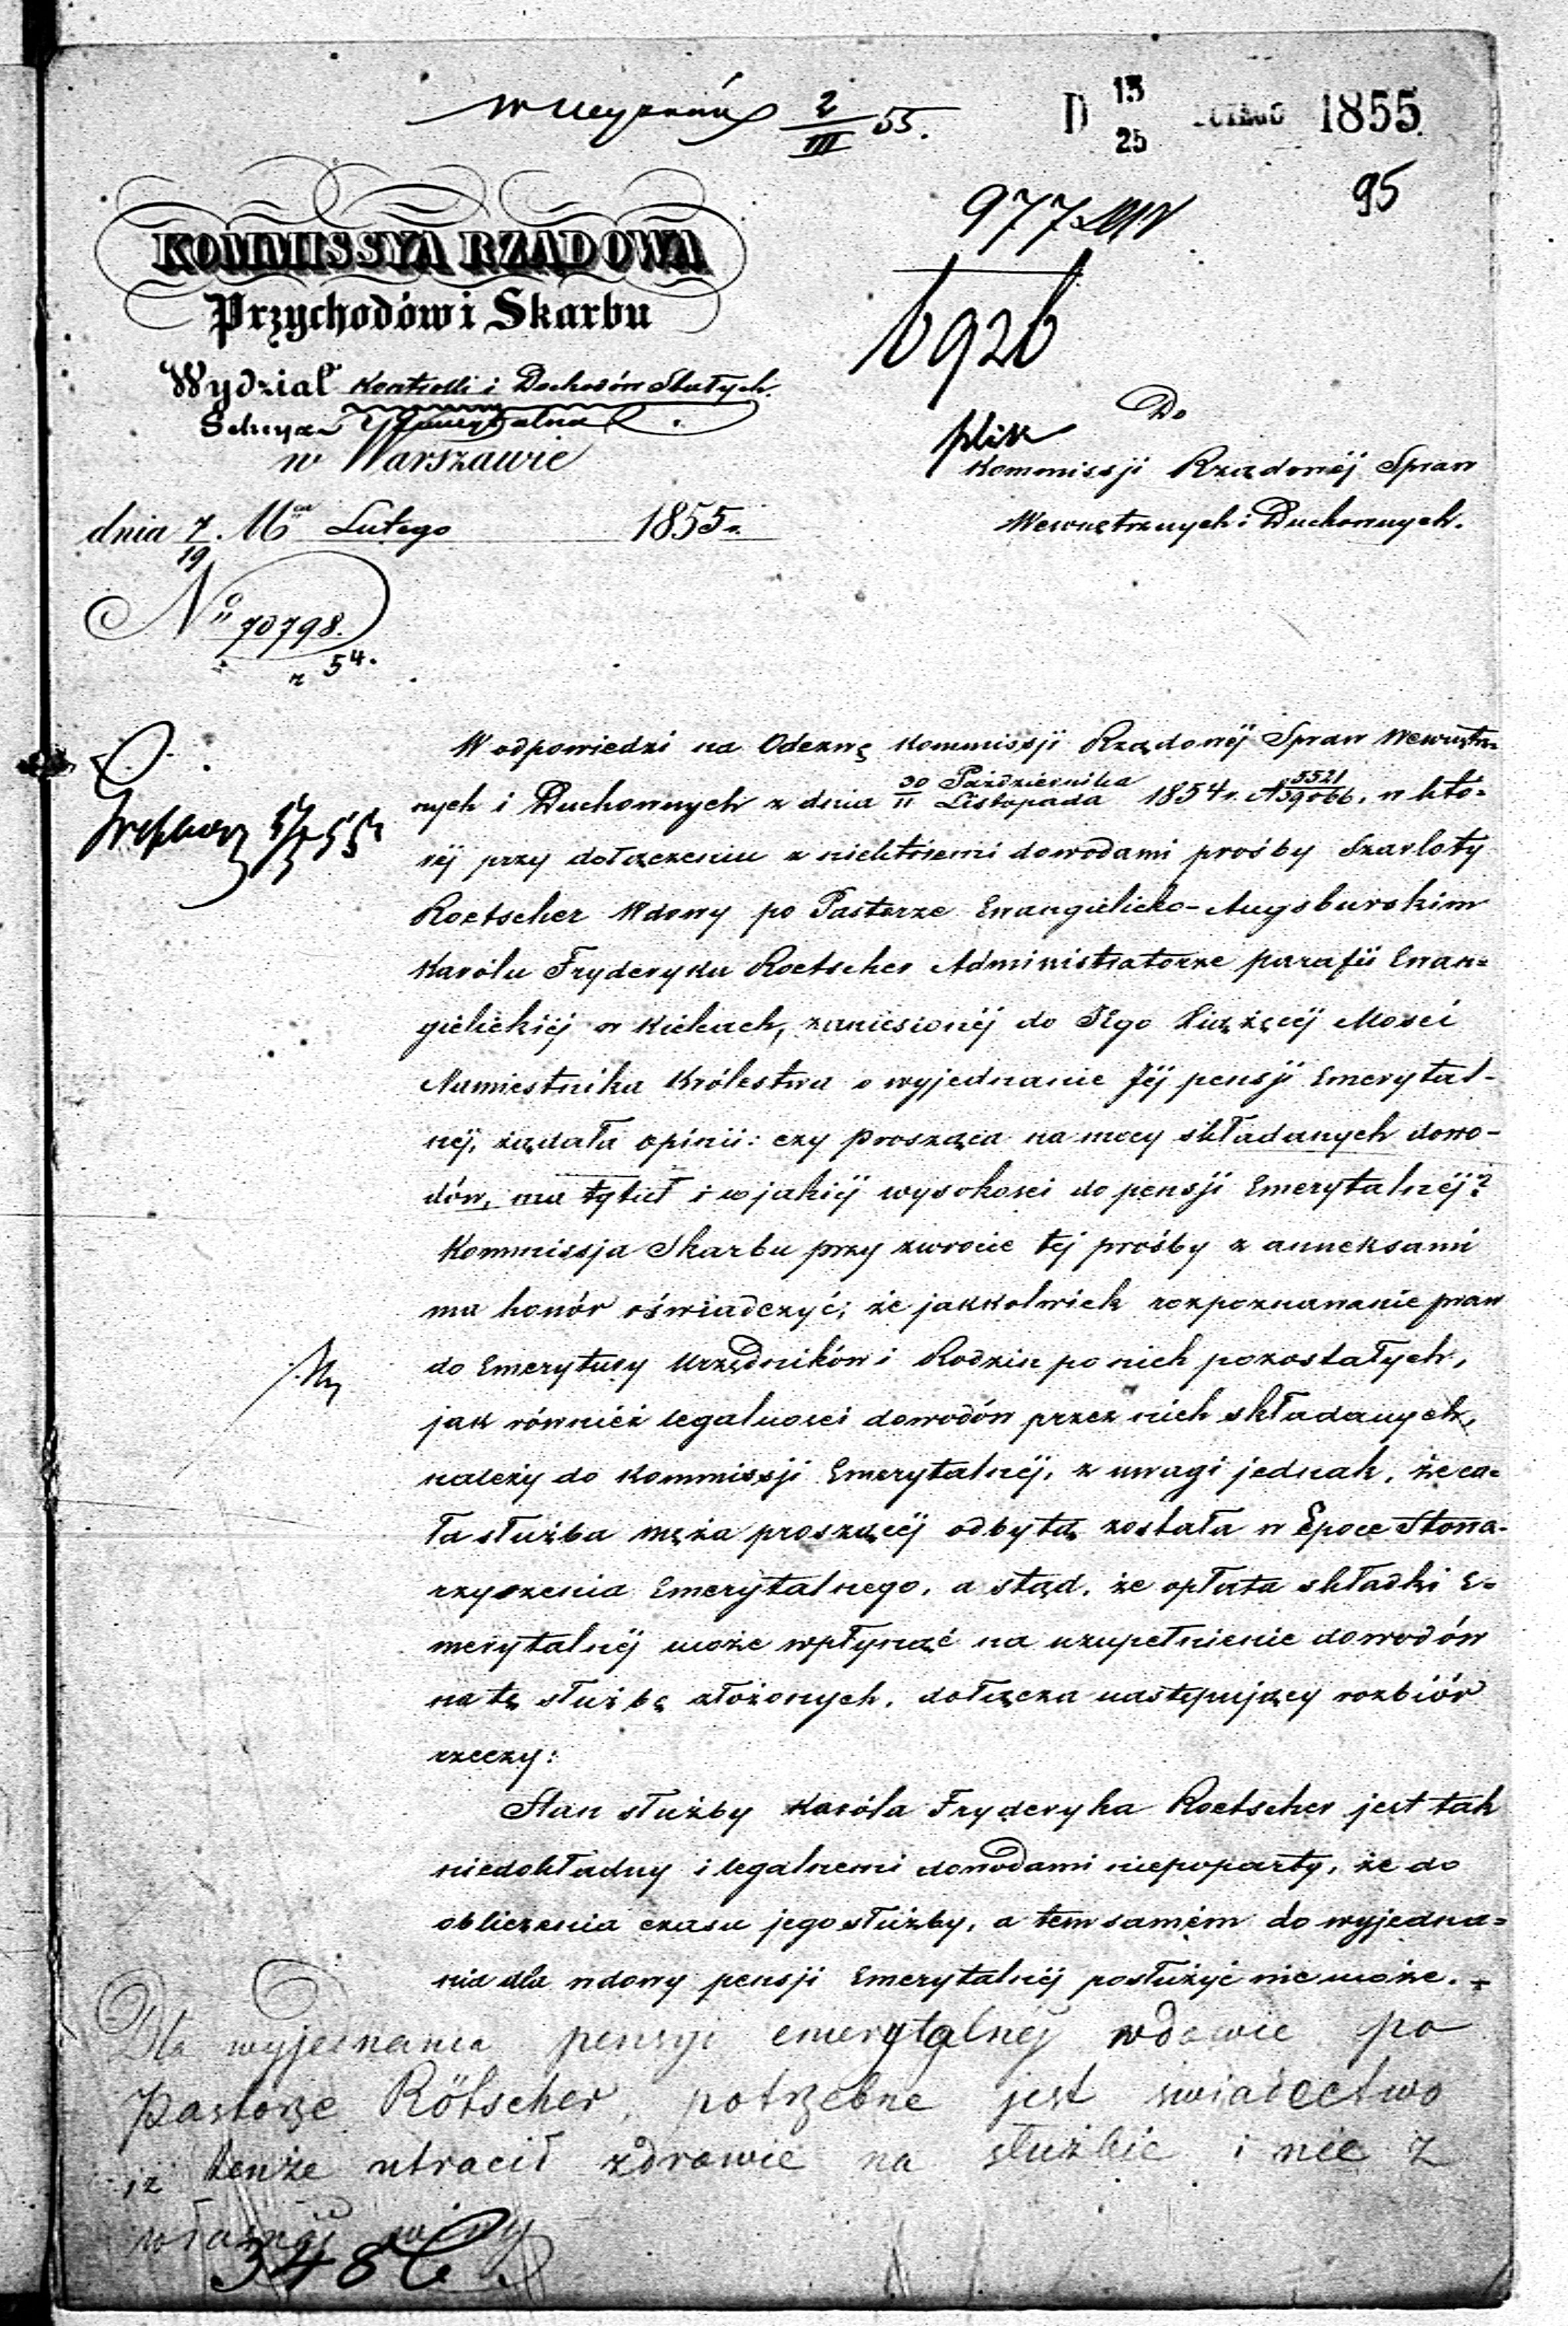 2/III 55.
D 13/25 LUTEGO 1855
95
977
6926
KOMMISSYA RZĄDOWA
Przychodów i Skarbu
Wydział Kontrolli i Dochodów Stałych.
Sekcya Emerytalna
w Warszawie
dnia 7/19 Mca Lutego 1855 r.
No 70798.
z 54.
plik
Do
Kommissji Rządowéj Spraw
Wewnętrznych i Duchownych.
W odpowiedzi na Odezwę Kommissji Rządowéj Spraw Wewnętrz-
nych i Duchownych z dnia 30 Października/11 Listopada 1854 r. N 5521/39066, w któ-
réj przy dołączeniu z niektóremi dowodami prośby Szarloty
Roetscher Wdowy po Pastorze Ewangielicko-Augsburskim
Karólu Fryderyku Roetscher Administratorze parafii Ewan-
gielickiéj w Kielcach, zaniesionéj do Jego Xiążęcéj Mości
Namiestnika Królestwa o wyjednanie Jéj pensji Emerytal-
néj, żądała opinii: czy prosząca na mocy składanych dowo-
dów, ma tytuł i w jakiéj wysokości do pensji Emerytalnéj?
Kommissja Skarbu przy zwrocie téj prośby z anneksami
ma honór oświadczyć; że jakkolwiek rozpoznawanie praw
do Emerytury Urzędników i Rodzin po nich pozostałych,
jak również legalności dowodów przez nich składanych,
należy do Kommissji Emerytalnéj, z uwagi jednak, że ca-
ła służba męża proszącéj odbytą została w Epoce Stowa-
rzyszenia Emerytalnego, a stąd, że opłata składki E-
merytalnéj może wpłynąć na uzupełnienie dowodów
na tę służbę złożonych, dołącza następujący rozbiór
rzeczy:
Stan służby Karóla Fryderyka Roetscher jest tak
niedokładny i legalnemi dowodami niepoparty, że do
obliczenia czasu jego służby, a tem samém do wyjedna-
nia dla wdowy pensji Emerytalnéj posłużyć nie może.
Dla wyjednania pensyi emerytalnéj wdowie po
Pastorze Rötscher, potrzebne jest świadectwo
iż tenże utracił zdrowie na służbie i nie z
własnéj winy
348